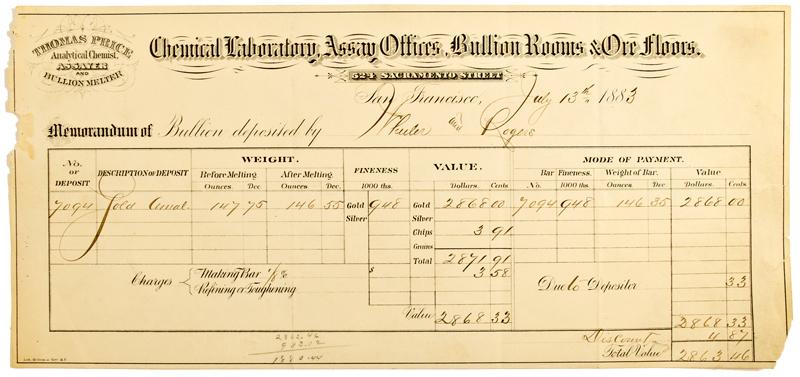 THOMAS PRICE
Analytical Chemist.
ASSAYER
AND
BULLION MELTER
Chemical Laboratory, Assay Offices, Bullion Rooms & Ore Floors.
524 SACRAMENTO STREET
San Francisco, July 13th 1883
Memorandum of Bullion deposited by and Rogers
No. OF DEPOSIT DESCRIPTION OF DEPOSIT WEIGHT. FINENESS VALUE. MODE OF PAYMENT.
Before Melting After Melting Bar Fineness. Weight of Bar. Value
Ounces. Dec Ounces. Dec. 1000 ths. Dollars. Cents No. 1000 ths. Ounces. Dec. Dollars. Cents
7094 Gold Amal. 147 75 146 55 Gold 948 2868 00 7094 948 146 35 2868 00
Silver Silver
Chips 3 91
Grains
Total 2871 91
Charges Making Bar 1/8 % $ 3 58 Due to Depositor 33
Refining or Toughening
Value 2868 33 2868 33
Discount 4 87
Total Value 2863 46
2862.46